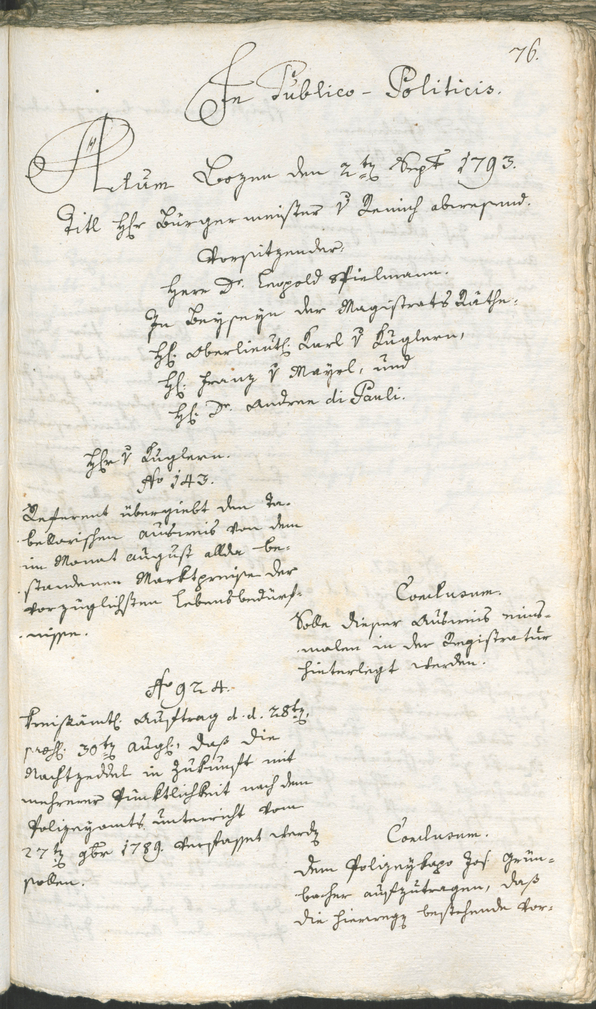 76.
In Publico-Politicis.
Actum Bozen den 2ten Sept 1793.
Titl Hr Bürgermeister v Remich abwesend.
Vorsitzender.
Herr Dr. Leopold Spielmann.
In Beyseyn der Magistrats Räthe:
H: Oberlieut: Karl v Kuglern,
H: Franz v Mayrl, und
H: Dr. Andreæ di Pauli.
Hr v Kuglern.
No 143.
Referent übergiebt den Ta-
bellarischen Ausweis von dem
im Monat August allda be-
standenen Marktpreise der
vorzüglichsten Lebensbedürf-
nisse.
Conclusum.
Solle dieser Ausweis eins-
malen in der Registratur
hinterlegt werden.
No 924.
Kreisämtl: Auftrag d. d. 28ten,
præs: 30ten Aug:, daß die
Nachtzeddel in Zukunft mit
mehrerer Pünktlichkeit nach dem
Polizeyamts unterricht vom
27ten 9br 1789 verfasset werden
sollen.
Conclusum.
dem Polizeykapo Jos: Grün-
bacher aufzutragen, daß
die hierwegen bestehende Vor-